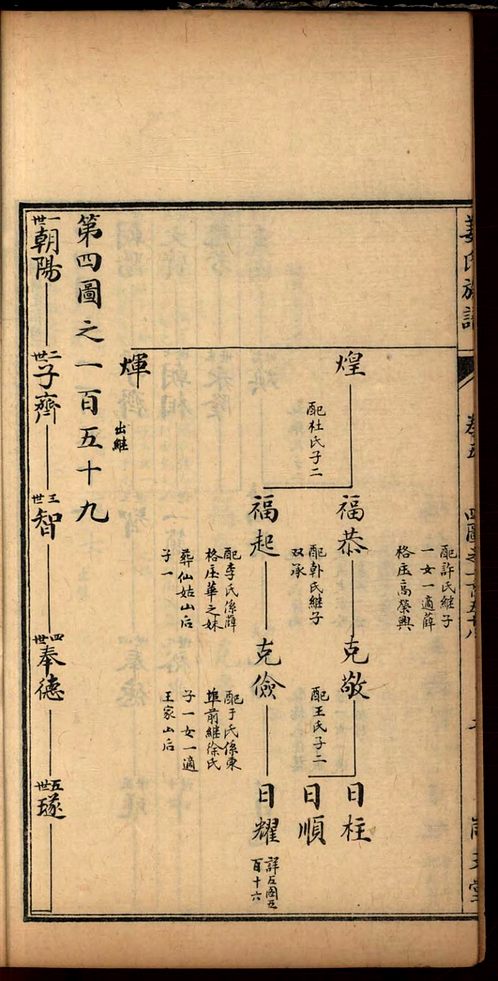 姜氏族譜
配許氏継子
一女一適薛
格庄高榮興
煌
配杜氏子二
福恭
配卧氏継子
双承
克敬
配王氏子二
日柱
日順
福起
配李氏係薛
格庄華之妹
葬仙姑山后
子一
克儉
配于氏係東
埠前継徐氏
子一女一適
王家山后
日耀
詳五圖五
百十六
煇
出継
第四圖之一百五十九
一世朝陽
二世子齊
三世智
四世奉德
五世璲